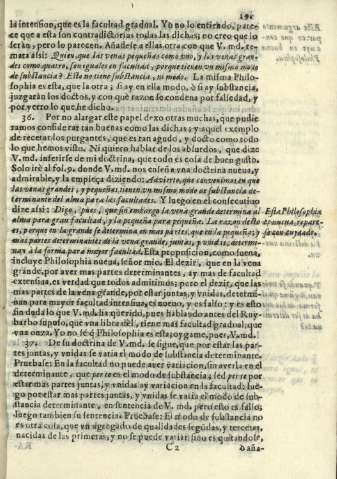 191
la intension, que es la facultad gradual. Yo no lo entiendo, parece
ce que a esta son contradictorias todas las dichas; no creo que lo
serán, pero lo parecen. Añadese a ellas otra con que V.md. re-
mata assi: Quien que las venas pequeñas como vn, y las venas gran-
des como quatro, son iguales en facultad, porque tienen vn mismo modo
de substancia? Esto no tiene substancia, ni modo. La misma Philo-
sophia es esta, que la otra; si ay en ella modo, ò si ay substancia,
juzgarán los doctos, y con què razon se condena por falsedad, y
por yerro lo que he dicho.
36. Por no alargar este papel dexo otras muchas, que pudie
ramos confiderar tan buenas como las dichas; y aquel exemplo
de recetar los purgantes, que es tan agudo, y docto como todo
lo que hemos visto. Ni quiero hablar de los absurdos, que dize
V.md. inferirse de mi doctrina, que todo es cosa de buen gusto.
Solo irè al fol.9. donde V.md. nos enseña vna doctrina nueva, y
admirable, y la empieça diziendo: Advierto, que convenimos en que
las venas grandes, y pequeñas, tienen vn mismo modo de substancia de-
terminante del alma para las facultades. Y luego en el consecutivo
dize assi: Digo, pues, que sin embargo la vena grande determina al
alma para gran facultad, y la pequeña para pequeña. La razon desto
es, porque en la grande se determina en mas partes, que en la pequeña; y
mas partes determinantes de la vena grande, juntas, y vnidas, determi-
nan à la forma para mayor facultad. Esta proposicion, como suena,
incluye Philosophia nueva, señor mio. El dezir, que en la vena
grande, por aver mas partes determinantes, ay mas de facultad
extensiva, es verdad que todos admitimos; pero el dezir, que las
mas partes de la vena grande, por estar juntas, y vnidas, determi-
nan para mayor facultad intensiva, es nuevo, y es falso: y es esto
sin duda lo que V.md. ha querido, pues hablando antes del Ruy-
barbo supuso, que vna libra dèl, tiene mas facultad gradual, que
vna onza. Yo no sè q̃ Philosophia es esta; oygame, pues, V.md.
37. De su doctrina de V.md. se sigue, que por estar las par-
tes juntas, y vnidas se varia el modo de substancia determinante.
Pruebase: En la facultad no puede aver variacion, sin averla en el
determinante, que para en el modo de substancia; sed per te por
estar mas partes juntas, y vnidas ay variacion en la facultad: lue-
go por estar mas partes juntas, y vnidas se varia el modo de sub-
stancia determinante, en sentencia de V.md. pero esto es falso,
luego tambien su sentencia. Pruebase: El modo de substancia no
es otra cosa, que vn agregado de qualidades segũdas, y terceras,
nacidas de las primeras, y no se puede variar, sino es quitandose,
C 2
ò aña-
Esta Philosophia